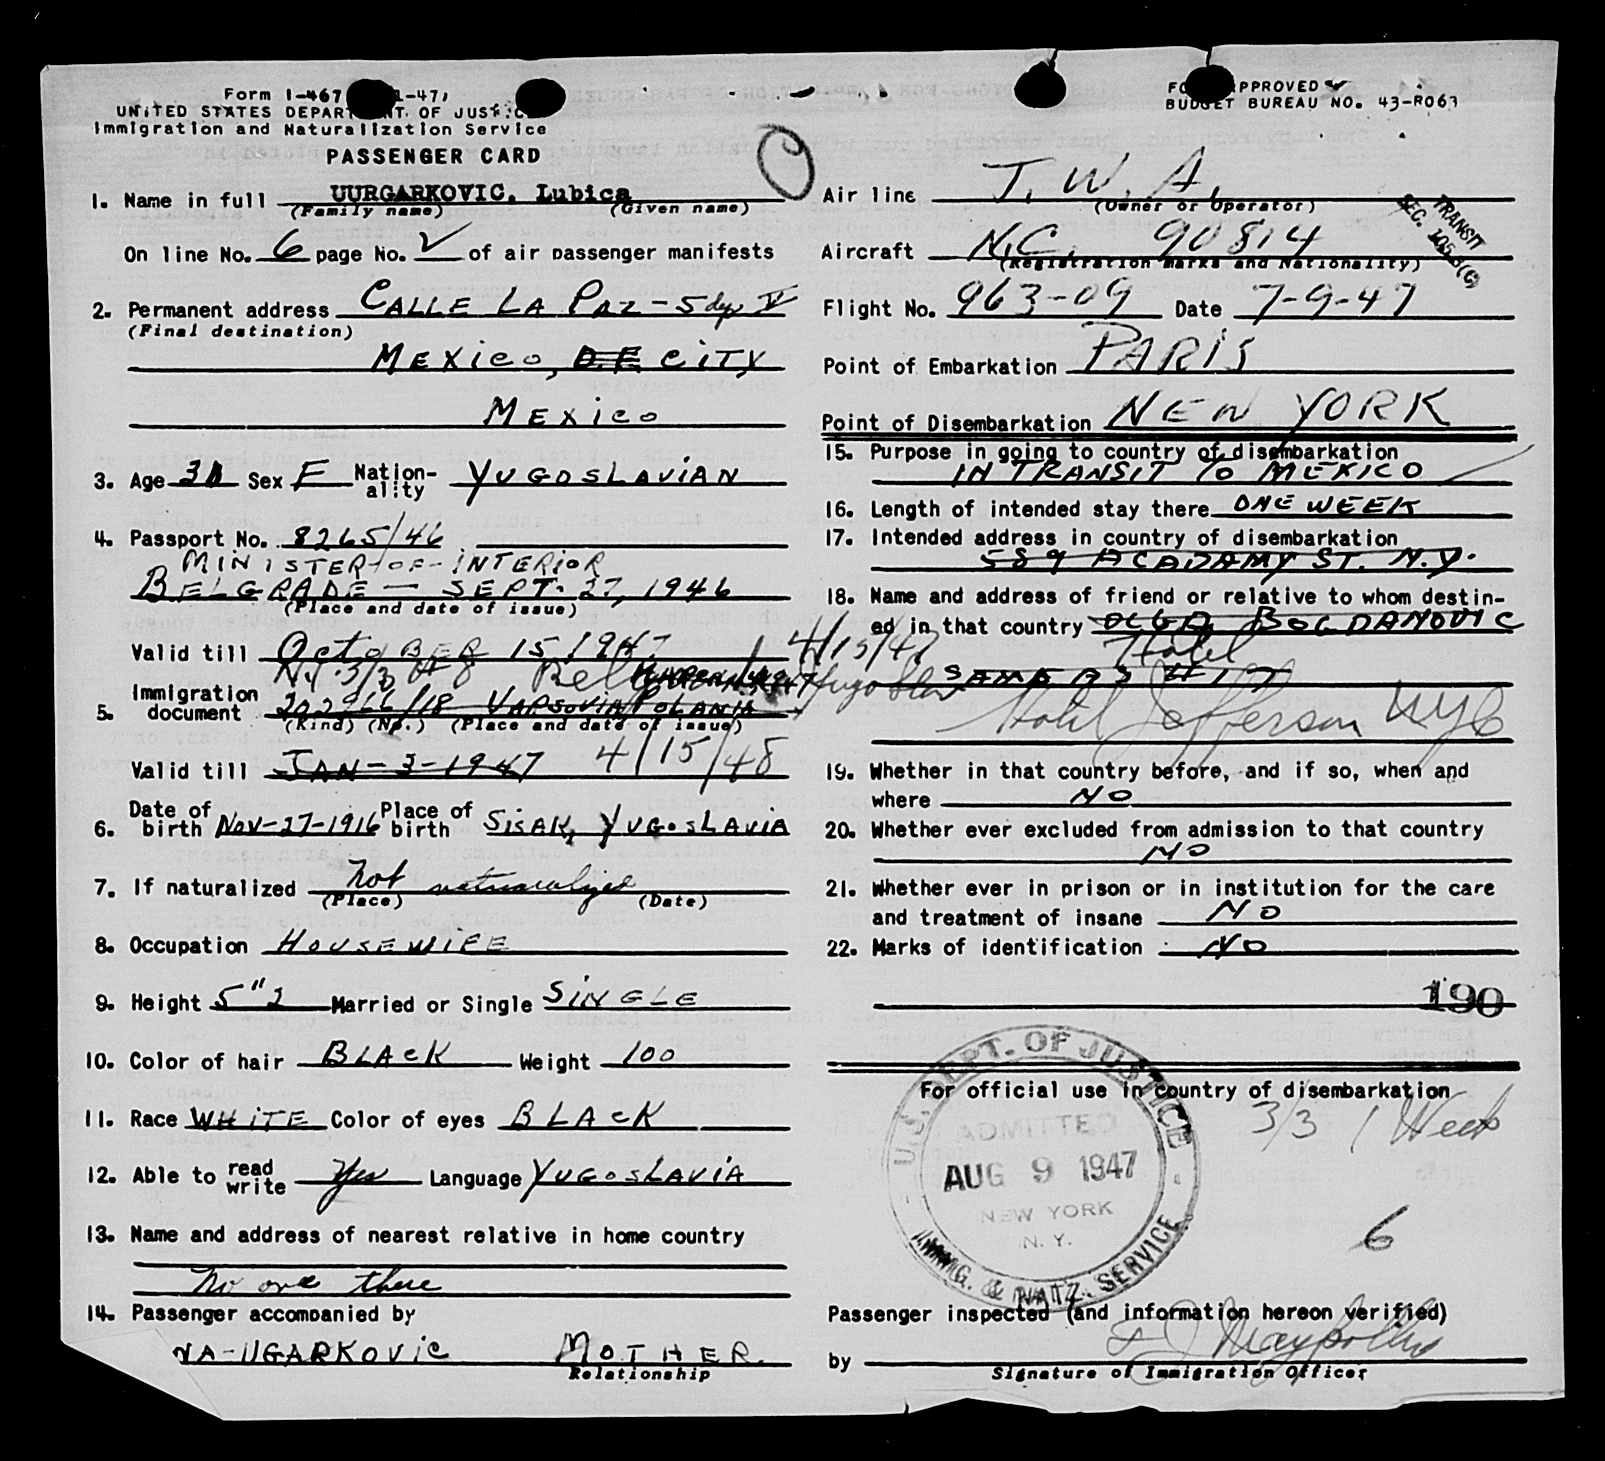 Form I-467
UNITED STATES DEPARTMENT OF JUSTICE
Immigration and Naturalization Service
PASSENGER CARD
1. Name in full UURGARKOVIC. Lubica
(Family name) (Given name)
On line No. 6 page No. of air passenger manifests
2. Permanent address CALLE LA PAZ - 5
(Final destination)
MEXICO, D.F. CITY
MEXICO
3. Age Sex F Nation-ality YUGOSLAVIAN
4. Passport No. 8265/46
MINISTER-OF-INTERIOR
BELGRADE — SEPT. 27, 1946
(Place and date of issue)
Valid till OctoBER 15 1947 4/15/47
N.Y. 3/3
5. Immigration document 202966/18 VARSOVIA/POLANIA
(Kind) (No.) (Place and date of issue)
Valid till JAN-3-1947 4/15/48
6. Date of birth Nov-27-1916 Place of birth SISAK, YUGOSLAVIA
7. If naturalized not naturalized
(Place) (Date)
8. Occupation HOUSEWIFE
9. Height 5"2 Married or Single SINGLE
10. Color of hair BLACK Weight 100
11. Race WHITE Color of eyes BLACK
12. Able to read write Yes Language YUGOSLAVIA
13. Name and address of nearest relative in home country
No one there
14. Passenger accompanied by
NA-UGARKOVIC MOTHER.
Relationship
FORM APPROVED
BUDGET BUREAU NO. 43-R063
Air line T.W.A.
(Owner or Operator)
TRANSIT
Aircraft N.C. 90814
(Registration marks and Nationality)
Flight No. 963-09 Date 7-9-47
Point of Embarkation PARIS
Point of Disembarkation NEW YORK
15. Purpose in going to country of disembarkation
IN TRANSIT TO MEXICO
16. Length of intended stay there ONE WEEK
17. Intended address in country of disembarkation
589 ACADAMY ST. N.Y.
18. Name and address of friend or relative to whom destin-
ed in that country OLGA BOGDANOVIC
Hotel
SAME AS #17
Hotel Jefferson NYC
19. Whether in that country before, and if so, when and
where NO
20. Whether ever excluded from admission to that country
NO
21. Whether ever in prison or in institution for the care
and treatment of insane NO
22. Marks of identification NO
190
For official use in country of disembarkation
3/3 1 Week
U.S. DEPT. OF JUSTICE
ADMITTED
AUG 9 1947
NEW YORK
N.Y.
IMMIG. & NATZ. SERVICE
6
Passenger inspected (and information hereon verified)
by
Signature of Immigration Officer